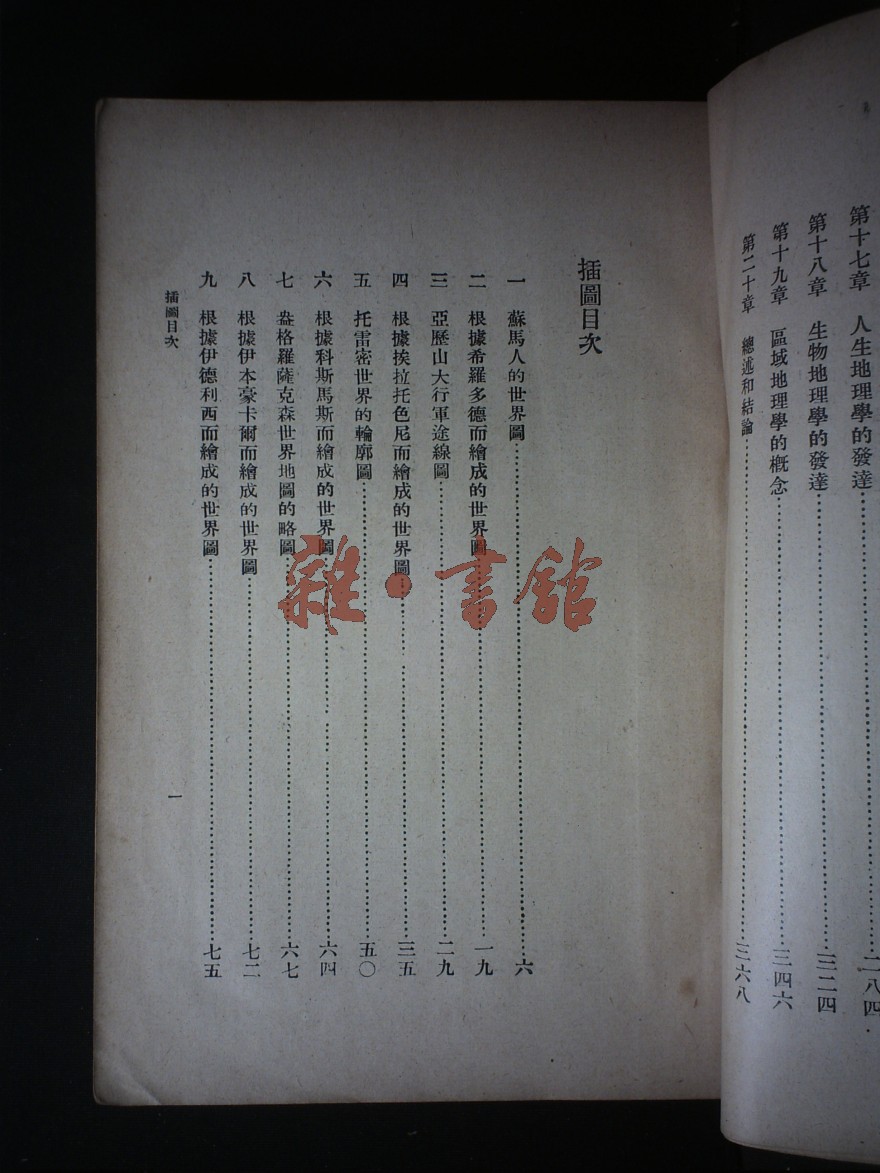 第十七章 人生地理學的發達…………二八四
第十八章 生物地理學的發達…………三二四
第十九章 區域地理學的概念…………三四六
第二十章 總述和結論…………三六八
插圖目次
一 蘇馬人的世界圖…………六
二 根據希羅多德而繪成的世界圖…………一九
三 亞歷山大行軍途線圖…………二九
四 根據挨拉托色尼而繪成的世界圖…………三五
五 托雷密世界的輪廓圖…………五〇
六 根據科斯馬斯而繪成的世界圖…………六四
七 盎格羅薩克森世界地圖的略圖…………六七
八 根據伊本豪卡爾而繪成的世界圖…………七二
九 根據伊德利西而繪成的世界圖…………七五
插圖目次
一
雜·書館